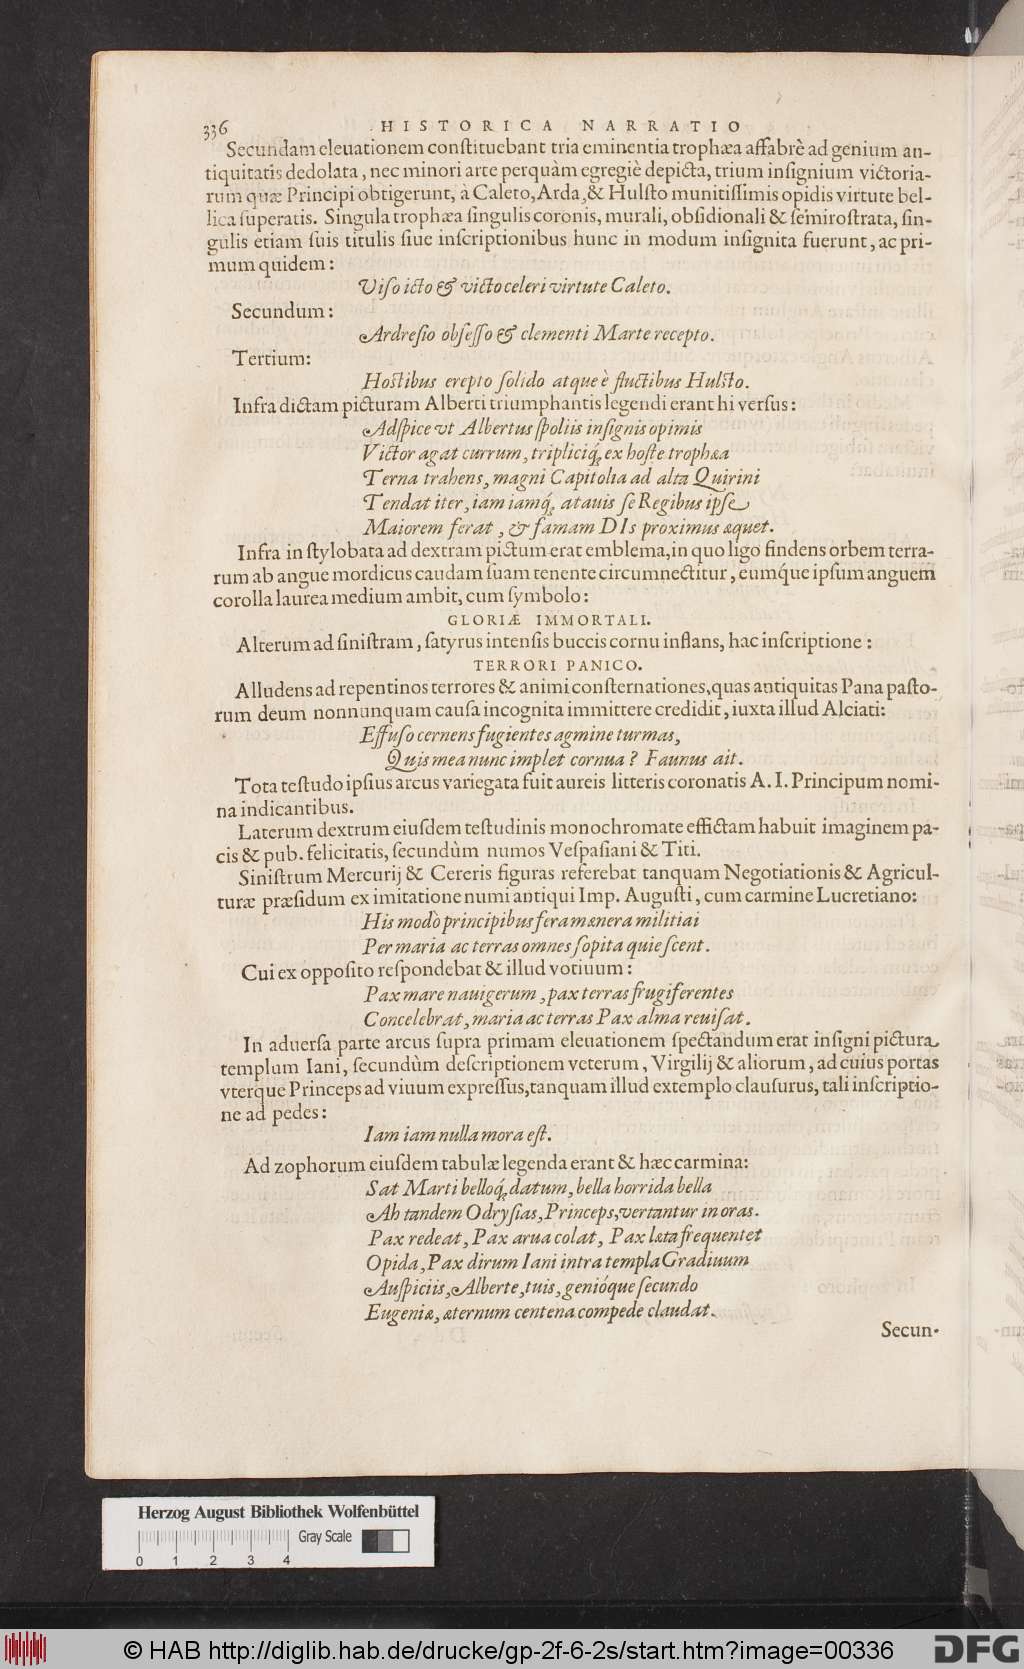 336 HISTORICA NARRATIO
Secundam eleuationem constituebant tria eminentia trophæa affabrè ad genium an-
tiquitatis dedolata, nec minori arte perquàm egregiè depicta, trium insignium victoria-
rum quæ Principi obtigerunt, à Caleto, Arda, & Hulsto munitissimis opidis virtute bel-
lica superatis. Singula trophæa singulis coronis, murali, obsidionali & semirostrata, sin-
gulis etiam suis titulis siue inscriptionibus hunc in modum insignita fuerunt, ac pri-
mum quidem:
Viso icto & victo celeri virtute Caleto.
Secundum:
Ardresio obsesso & clementi Marte recepto.
Tertium:
Hostibus erepto solido atque è fluctibus Hulsto.
Infra dictam picturam Alberti triumphantis legendi erant hi versus:
Adspice vt Albertus spoliis insignis opimis
Victor agat currum, tripliciq́; ex hoste trophæa
Terna trahens, magni Capitolia ad alta Quirini
Tendat iter, iam iamq́; atauis se Regibus ipse
Maiorem ferat, & famam DIs proximus æquet.
Infra in stylobata ad dextram pictum erat emblema, in quo ligo findens orbem terra-
rum ab angue mordicus caudam suam tenente circumnectitur, eumq́ue ipsum anguem
corolla laurea medium ambit, cum symbolo:
GLORIÆ IMMORTALI.
Alterum ad sinistram, satyrus intensis buccis cornu inflans, hac inscriptione:
TERRORI PANICO.
Alludens ad repentinos terrores & animi consternationes, quas antiquitas Pana pasto-
rum deum nonnunquam causa incognita immittere credidit, iuxta illud Alciati:
Effuso cernens fugientes agmine turmas,
Quis mea nunc implet cornua? Faunus ait.
Tota testudo ipsius arcus variegata fuit aureis litteris coronatis A. I. Principum nomi-
na indicantibus.
Laterum dextrum eiusdem testudinis monochromate effictam habuit imaginem pa-
cis & pub. felicitatis, secundùm numos Vespasiani & Titi.
Sinistrum Mercurij & Cereris figuras referebat tanquam Negotiationis & Agricul-
turæ præsidum ex imitatione numi antiqui Imp. Augusti, cum carmine Lucretiano:
His modò principibus fera mænera militiai
Per maria ac terras omnes sopita quiescent.
Cui ex opposito respondebat & illud votiuum:
Pax mare nauigerum, pax terras frugiferentes
Concelebrat, maria ac terras Pax alma reuisat.
In aduersa parte arcus supra primam eleuationem spectandum erat insigni pictura
templum Iani, secundùm descriptionem veterum, Virgilij & aliorum, ad cuius portas
vterque Princeps ad viuum expressus, tanquam illud extemplo clausurus, tali inscriptio-
ne ad pedes:
Iam iam nulla mora est.
Ad zophorum eiusdem tabulæ legenda erant & hæc carmina:
Sat Marti belloq́; datum, bella horrida bella
Ah tandem Odrysias, Princeps, vertantur in oras.
Pax redeat, Pax arua colat, Pax læta frequentet
Opida, Pax dirum Iani intra templa Gradiuum
Auspiciis, Alberte, tuis, genióque secundo
Eugeniæ, æternum centena compede claudat.
Secun-
Herzog August Bibliothek Wolfenbüttel
Gray Scale
0 1 2 3 4
© HAB http://diglib.hab.de/drucke/gp-2f-6-2s/start.htm?image=00336
DFG